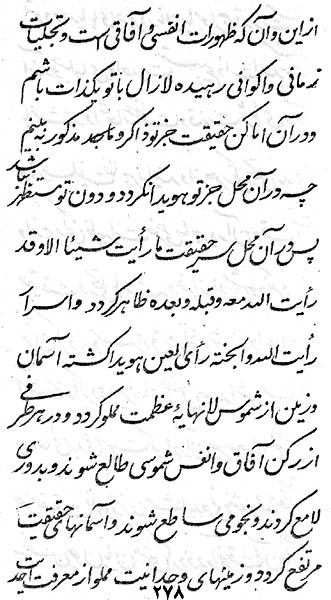 از این و آن که ظهورات انفسی و آفاقی است و تجلیات
زمانی و اکوانی رهیده لازال با تو یکذات باشم
و در آن اماکن حقیقت جز تو ذاکر و ساجد مذکور نه بینم
چه در آن محل جز تو هویدا نگردد و دون تو مستظهر نباشد
پس در آن محل سر حقیقت ما رأیت شیئا الا وقد
رأیت الله معه و قبله و بعده ظاهر گردد و اسرار
رأیت الله و الجنة رأی العین هویدا گشته آسمان
و زمین از شموس لانهایهٔ عظمت مملو گردد و در هر طرفی
از رکن آفاق و انفس شموسی طالع شوند و بدوری
لامع گردند و نجومی ساطع شوند و آسمانهای حقیقت
مرتفع گردد و زمینهای وحدانیت مملو از معرفت احدیت
۲۷۸